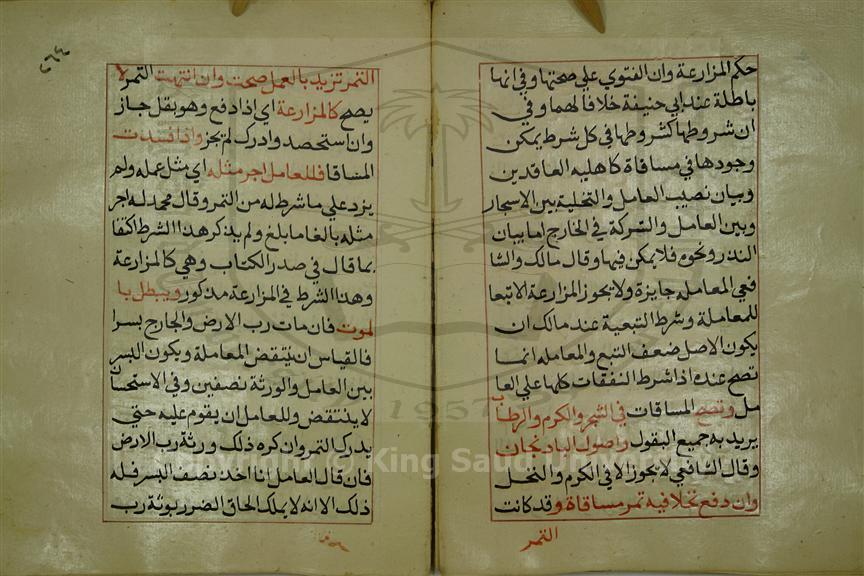 حكم المزارعة وان الفتوي علي صحتها وفي انها
باطلة عند ابي حنيفة خلافا لهما وفي
ان شروطها كشروطها في كل شرط يمكن
وجودها في مساقاة كاهلية العاقدين
وبيان نصيب العامل والتخلية بين الاسجار
وبين العامل والشركة في الخارج اما بيان
البذر ونحوه فلا يمكن فيها وقال مالك والشا
فعي المعامله جايزة ولا يجوز المزارعة الاتبعا
للمعاملة وشرط التبعية عند مالك ان
يكون الاصل ضعف التبع والمعامله انما
تصح عنده اذا شرط النفقات كلها علي العا
مل وتصح المساقات في الشجر والكرم والرطاب
يريد به جميع البقول واصول الباذنجان
وقال الشافعي لا يجوز الا في الكرم والنخل
وان دفع نخلا فيه تمر مساقاة وقد كانت
التمر
٢٦٤
التمر تزيد بالعمل صحت وان انتهت التمر لا
يصح كالمزارعة اي اذا دفع وهو بقل جاز
وان استحصد وادرك لم يجز واذا فسدت
المساقا فللعامل اجر مثله اي مثل عمله ولم
يزد علي ما شرط له من التمر وقال محمد له اجر
مثله بالغا ما بلغ ولم يذكر هذا الشرط اكتفا
بما قال في صدر الكتاب وهي كالمزارعة
وهذا الشرط في المزارعة مذكور ويبطل با
لموت فان مات رب الارض والخارج بسرا
فالقياس ان تنتقض المعاملة ويكون البسر
بين العامل والورثة نصفين وفي الاستحسان
لا ينتقض وللعامل ان يقوم عليه حتي
يدرك التمر وان كره ذلك ورثة رب الارض
فان قال العامل انا اخذ نصف البسر فله
ذلك الا انه لا يملك الحاق الضرر بورثة رب
King Saud
1957